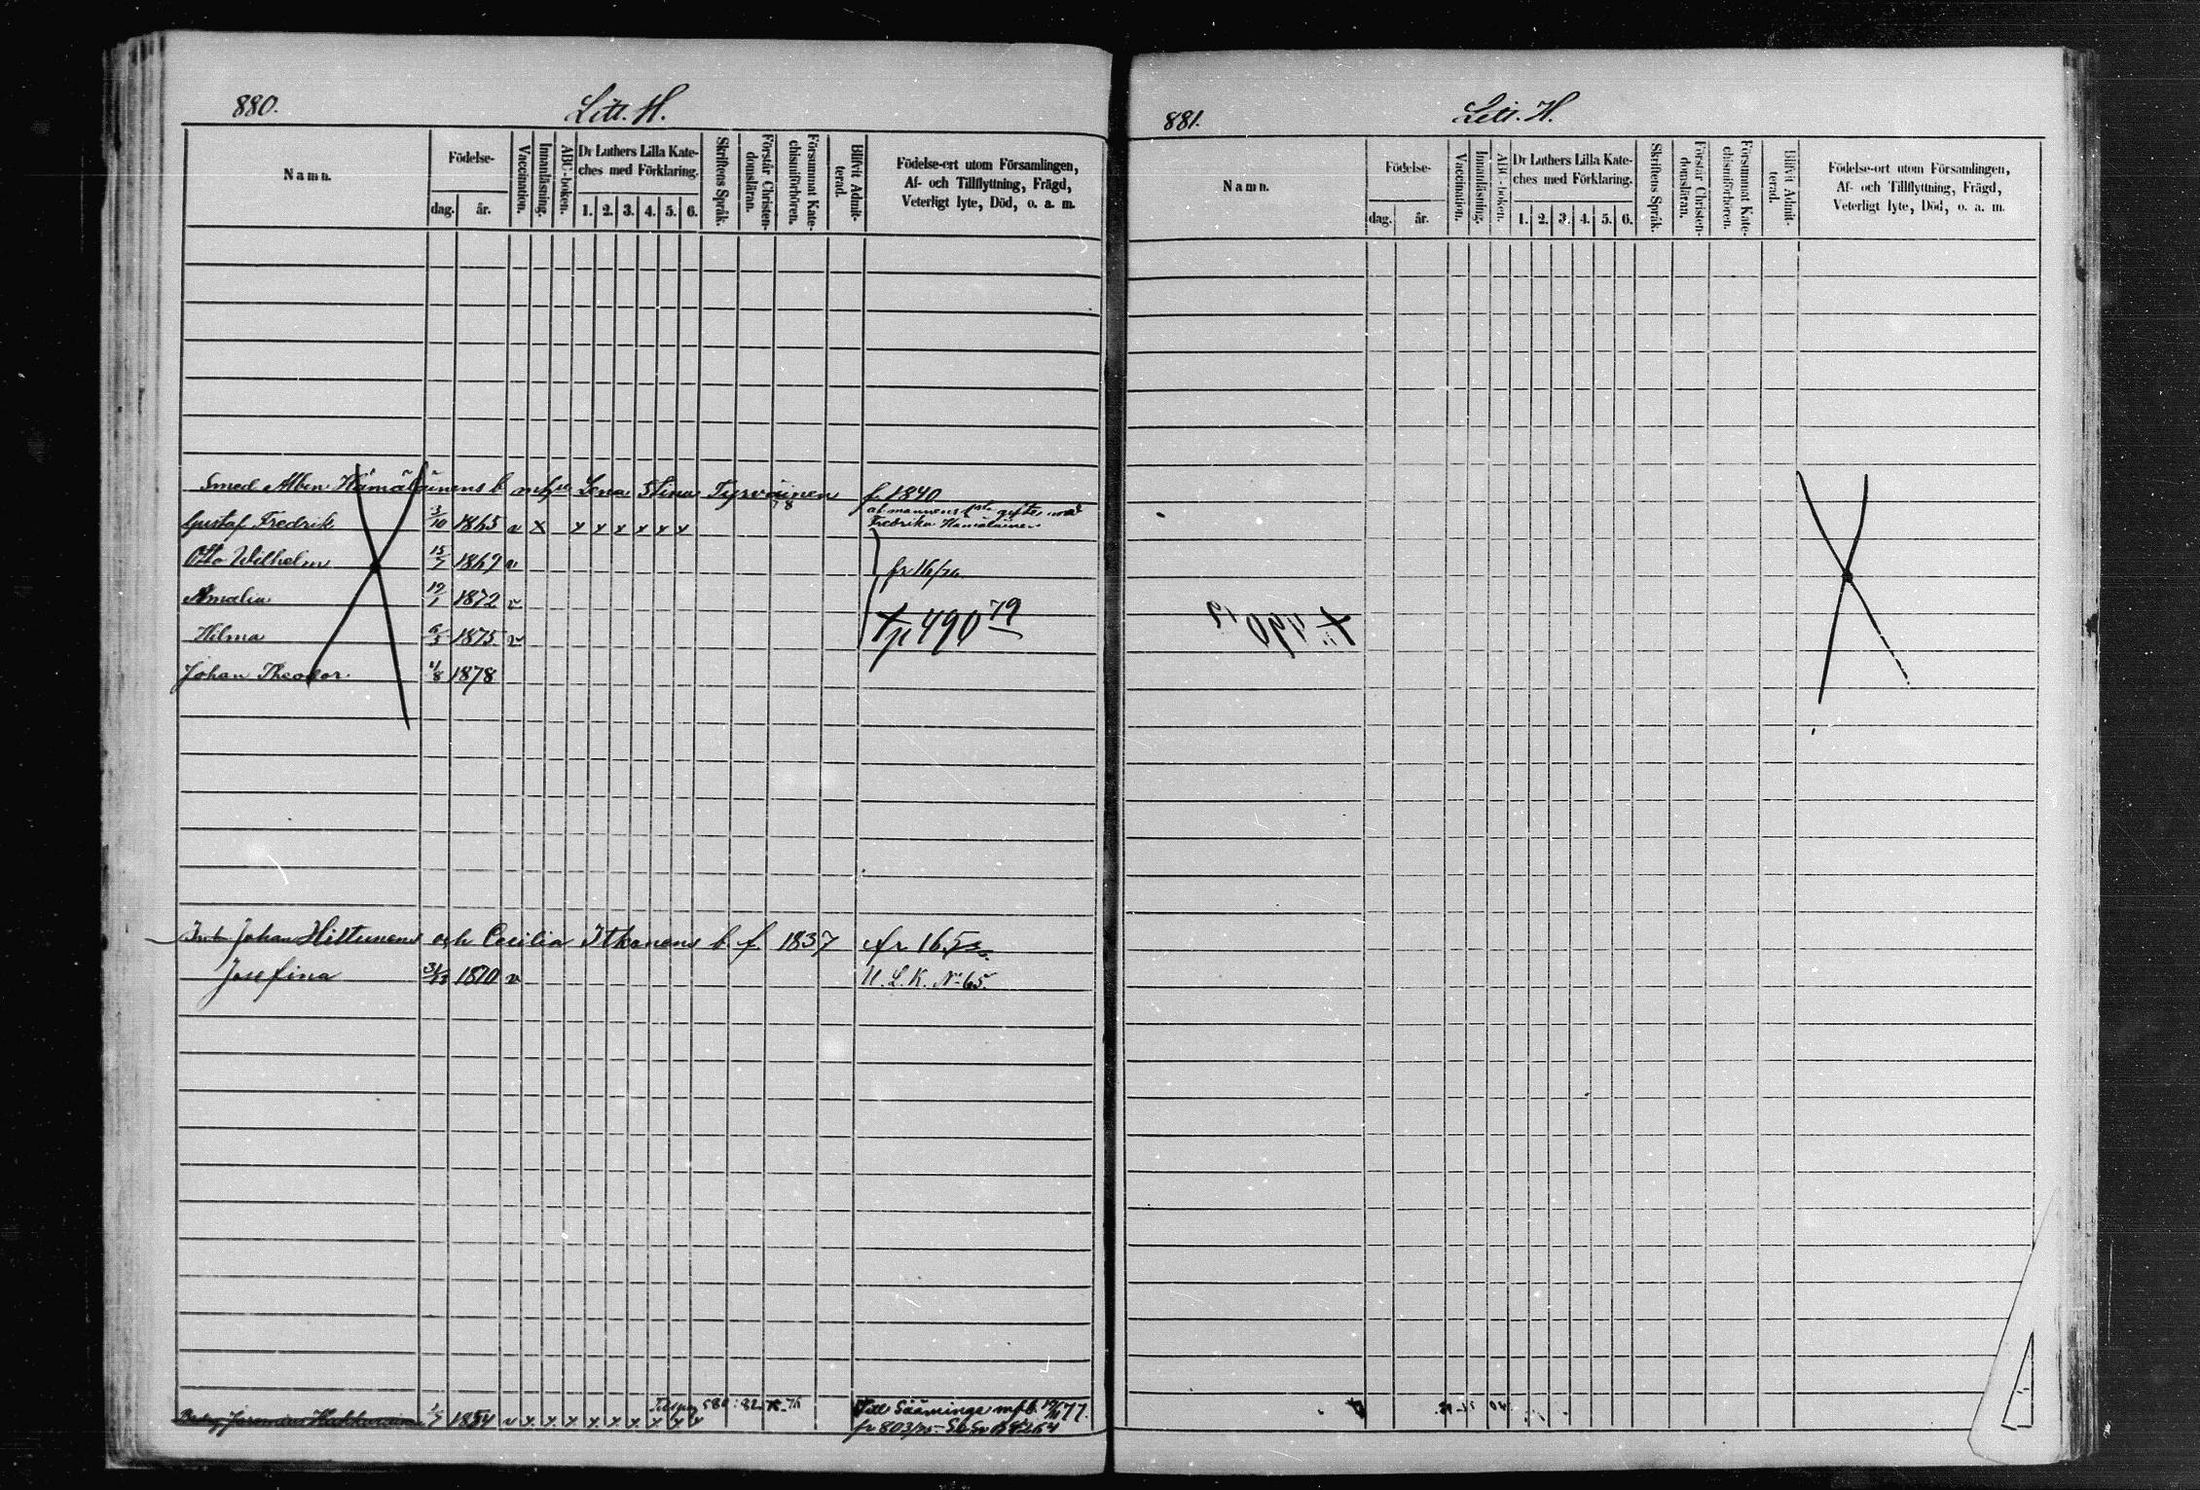 880.
Litt. H.
Namn.
Födelse-
dag.
år.
Vaccination.
Innanläsning.
ABC-boken.
Dr Luthers Lilla Kate-
ches med Förklaring.
1. 2. 3. 4. 5. 6.
Skriftens Språk.
Förstår Christen-
domsläran.
Försummat Kate-
chismiförhören.
Blifvit Admit-
terad.
Födelse-ort utom Församlingen,
Af- och Tillflyttning, Frägd,
Veterligt lyte, Död, o. a. m.
Smed Alben Hämäläinens b. m. hu Lena Stina Tyrväinen f. 1840
Gustaf Fredrik 3/10 1865 v x x x x x x x af mannens 1sta gifte med
Fredrika Hämäläinen
Otto Wilhelm 15/7 1869 v fr 16/76
Amalia 19/1 1872 v
Hilma 6/5 1875 v p 490 79
Johan Theodor 11/8 1878
Johan Hiltunens och Cecilia Itkonens b. f. 1837 fr 165
Josefina 1870 v U. L. K. No 65.
1854 v x x x x x x x x Till Sääminge m. f. b. 77.
fr 803/75
881.
Litt. H.
Namn.
Födelse-
dag.
år.
Vaccination.
Innanläsning.
ABC-boken.
Dr Luthers Lilla Kate-
ches med Förklaring.
1. 2. 3. 4. 5. 6.
Skriftens Språk.
Förstår Christen-
domsläran.
Försummat Kate-
chismiförhören.
Blifvit Admit-
terad.
Födelse-ort utom Församlingen,
Af- och Tillflyttning, Frägd,
Veterligt lyte, Död, o. a. m.